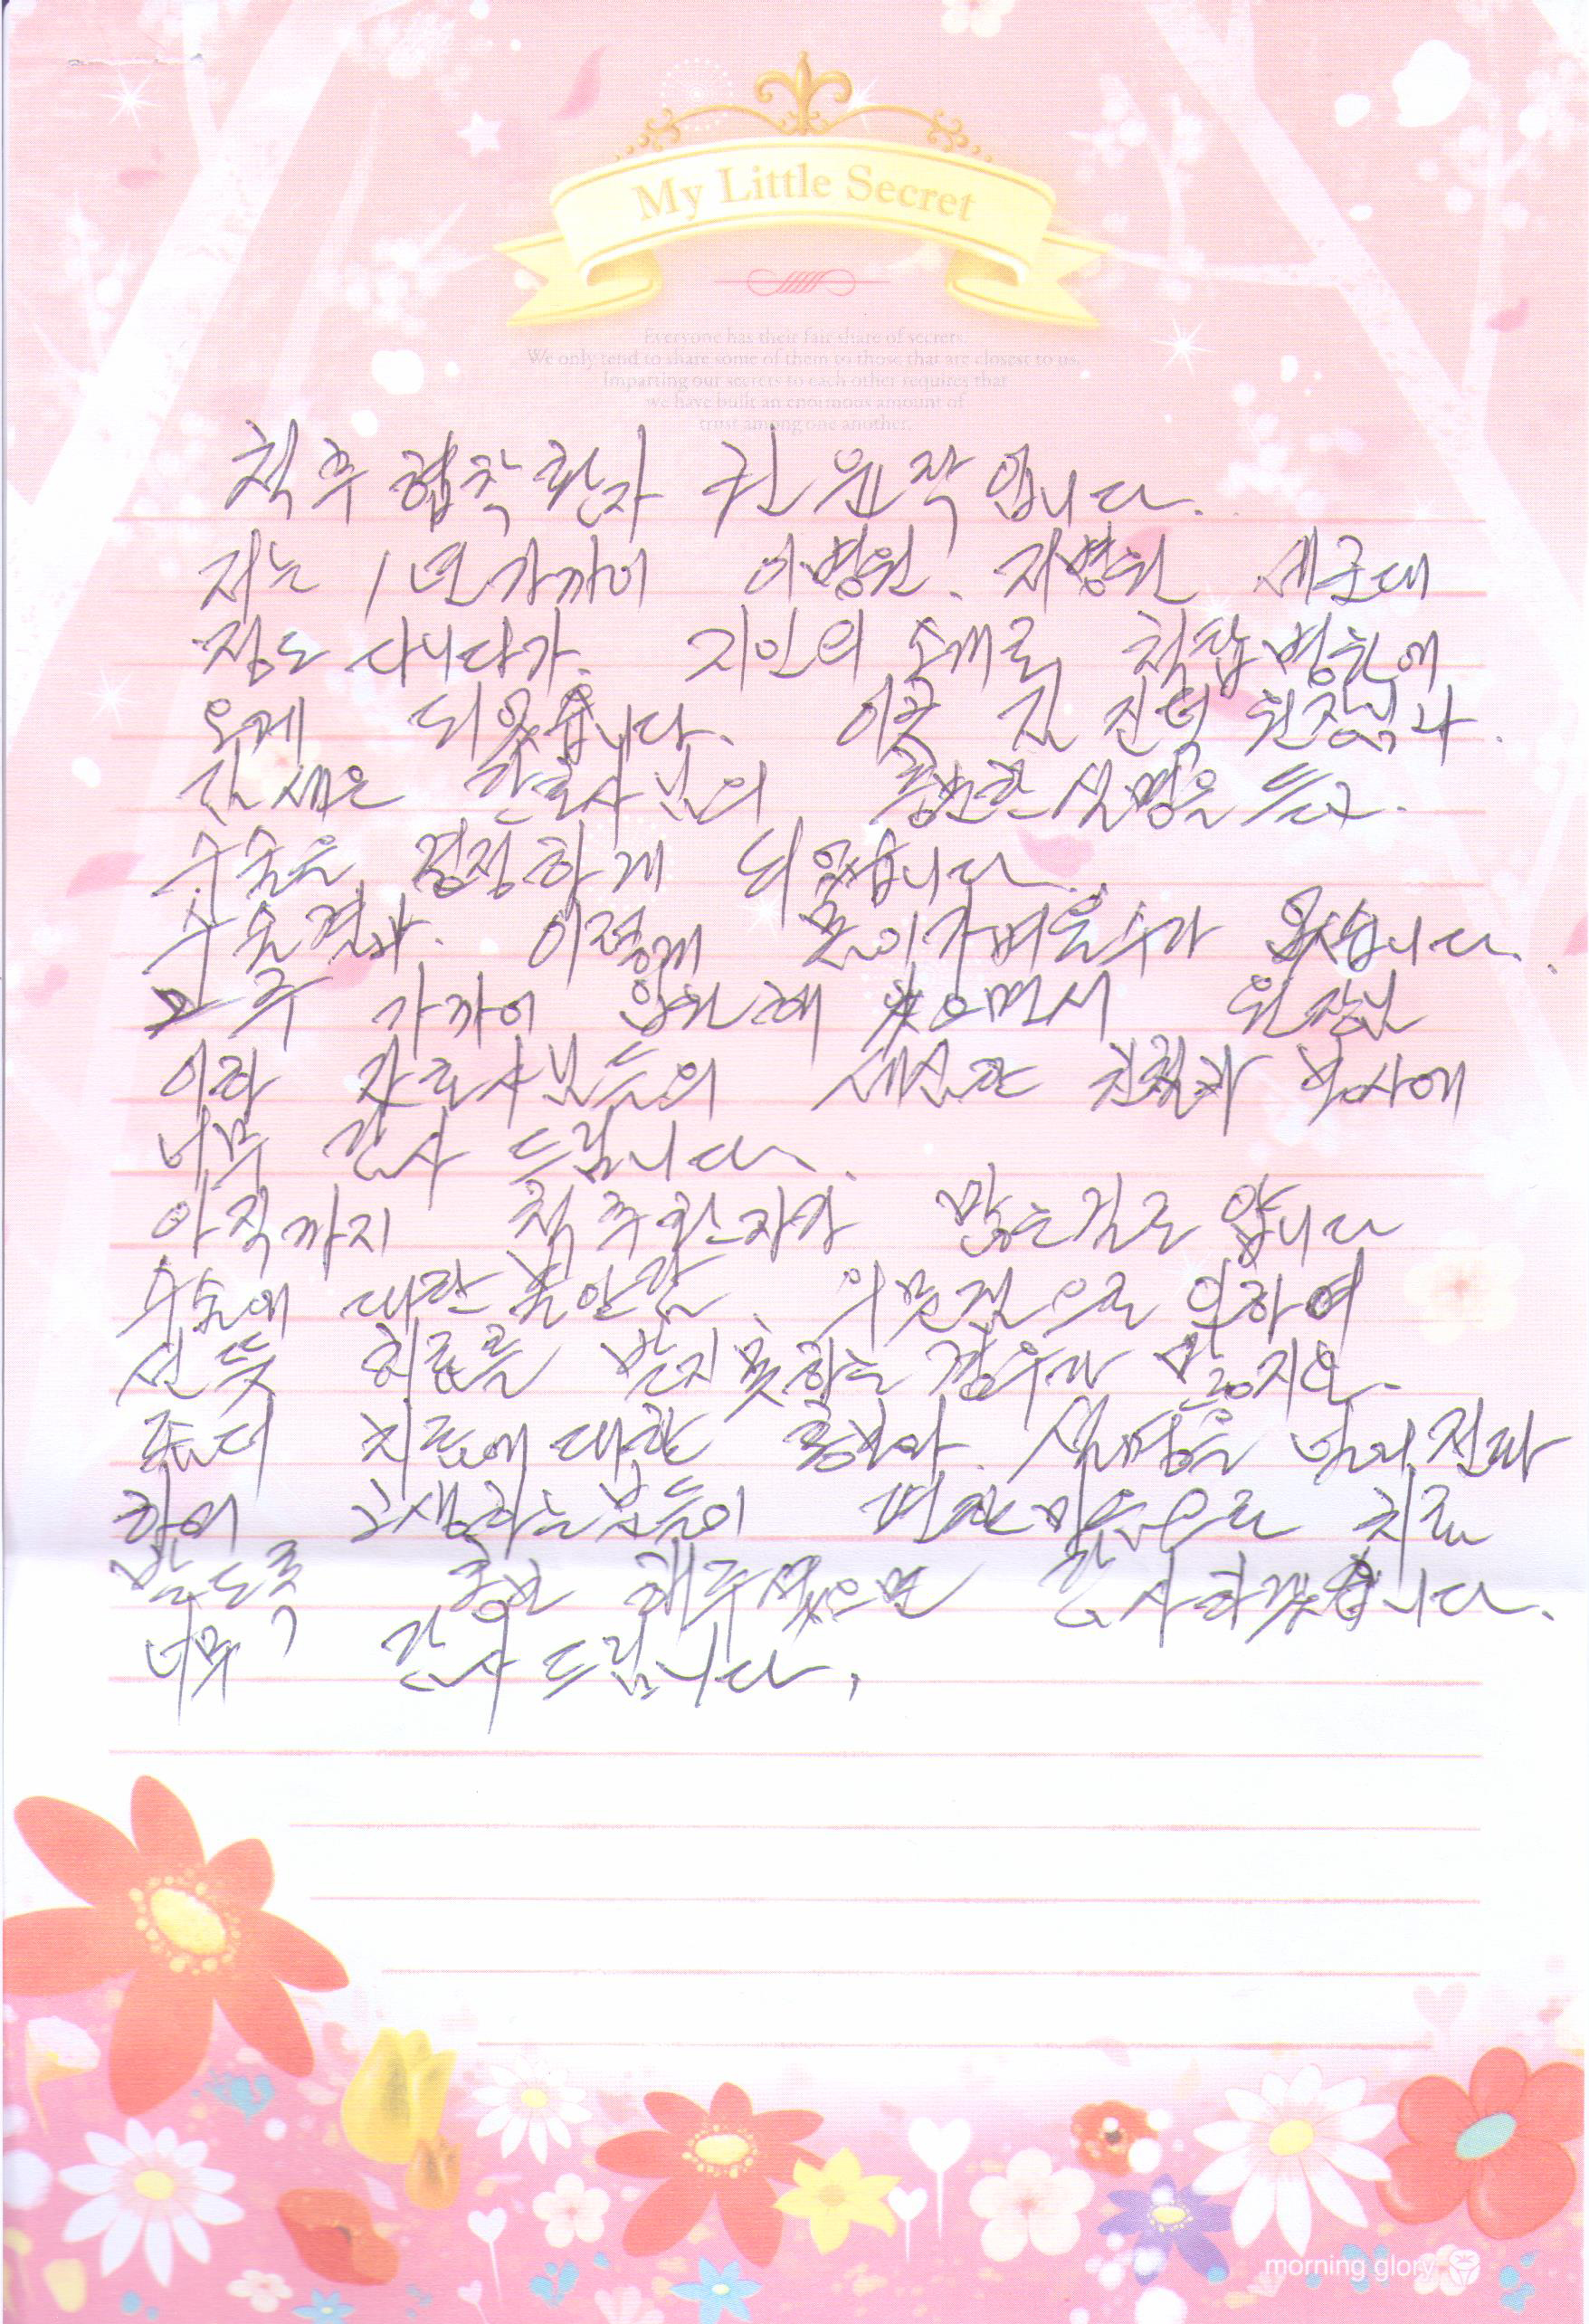 My Little Secret
Everyone has their fair share of secrets.
We only tend to share some of them to those that are closest to us.
Imparting our secrets to each other requires that
we have built an enormous amount of
trust among one another.
척추 협착 환자 권 윤작 입니다.
저는 1년 가까이 이병원. 저병원 세군데
정도 다니다가. 지인의 소개로 척탑병원에
오게 되었습니다. 이곳 김 진덕 원장님과.
간호사님의 충분한 설명을 듣고.
수술을 결정하게 되었습니다.
수술결과. 이렇게 몸이가벼울수가 없습니다.
2주 가까이 입원해 있으면서 원장님
이랑 간호사님들의 세심한 친절과 봉사에
너무 감사 드립니다.
아직까지 척추환자가 많은걸로 압니다
수술에 대한 불안감. 의하여
선뜻 치료를 받지못하는 경우가 많지요.
좀더 치료에대한 홍보와. 설명을 널리 전파
하여 고생하는분들이 편한마음으로 치료
받도록 홍보 해주셨으면 감사하겠습니다.
너무 감사 드립니다.
morning glory